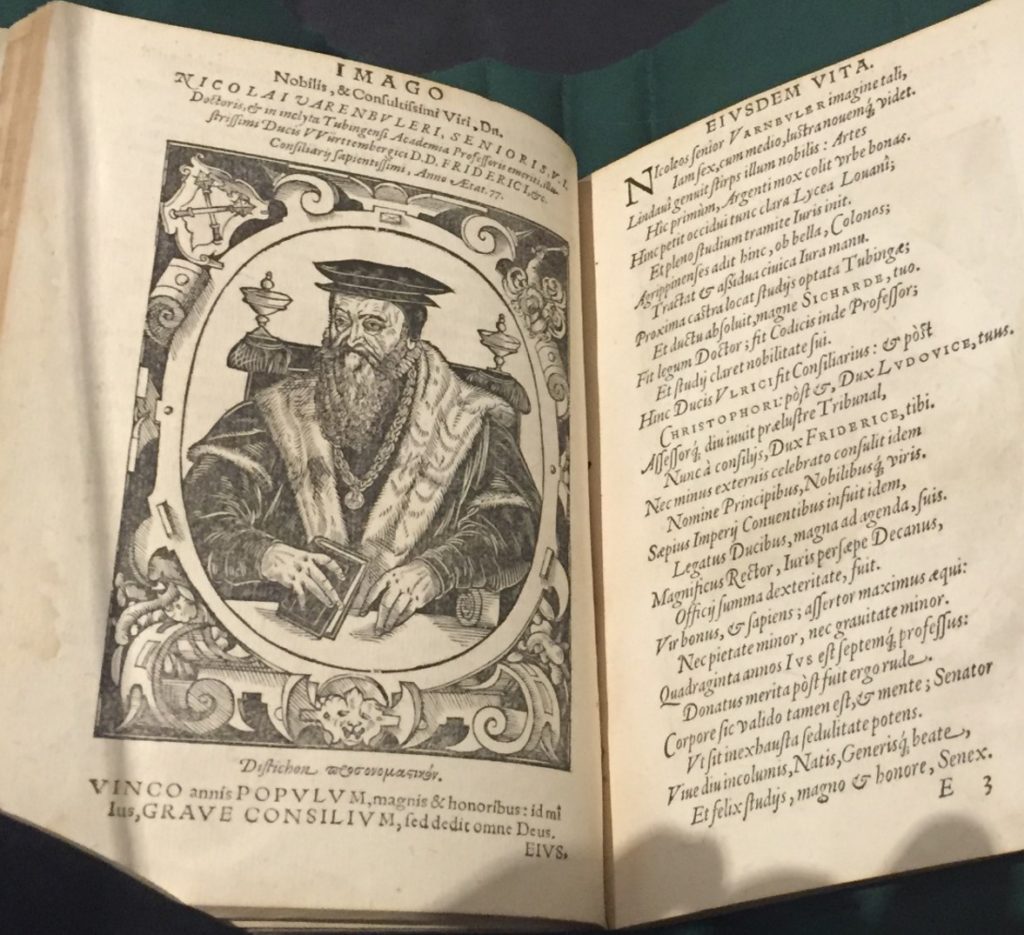 IMAGO
Nobilis, & Consultissimi Viri, Dn.
NICOLAI VARENBVLERI, SENIORIS, V. I.
Doctoris, & in inclyta Tubingensi Academia Professoris emeriti, illu-
strissimi Ducis VVürttembergici D.D. FRIDERICI, &c.
Consiliarij sapientissimi, Anno Ætat. 77.
Distichon προσονομαστικόν.
VINCO annis POPVLVM, magnis & honoribus: id mî
Ius, GRAVE CONSILIVM, sed dedit omne Deus.
EIVS,
EIVSDEM VITA.
NIcoleos senior VARNBVLER imagine tali,
Iam sex, cum medio, lustra nouemq́; videt.
Lindaui genuit stirps illum nobilis: Artes
Hic primùm, Argenti mox colit vrbe bonas.
Hinc petit occidui tunc clara Lycea Louanî;
Et pleno studium tramite Iuris init.
Agrippinenses adit hinc, ob bella, Colonos;
Tractat & assidua ciuica Iura manu.
Proxima castra locat studijs optata Tubingæ;
Et ductu absoluit, magne SICHARDE, tuo.
Fit legum Doctor; fit Codicis inde Professor;
Et studij claret nobilitate sui.
Hinc Ducis VLRICI fit Consiliarius: & pòst
CHRISTOPHORI: pòst &, Dux LVDOVICE, tuus.
Assessorq́; diu iuuit prælustre Tribunal,
Nunc à consilijs, Dux FRIDERICE, tibi.
Nec minus externis celebrato consulit idem
Nomine Principibus, Nobilibusq́; viris.
Sæpius Imperij Conuentibus infuit idem,
Legatus Ducibus, magna ad agenda, suis.
Magnificus Rector, Iuris persæpe Decanus,
Officij summa dexteritate, fuit.
Vir bonus, & sapiens; assertor maximus æqui:
Nec pietate minor, nec grauitate minor.
Quadraginta annos IVS est septemq́; professus:
Donatus merita pòst fuit ergo rude.
Corpore sic valido tamen est, & mente; Senator
Vt sit inexhausta sedulitate potens.
Viue diu incolumis, Natis, Generisq́; beate,
Et felix studijs, magno & honore, Senex.
E 3